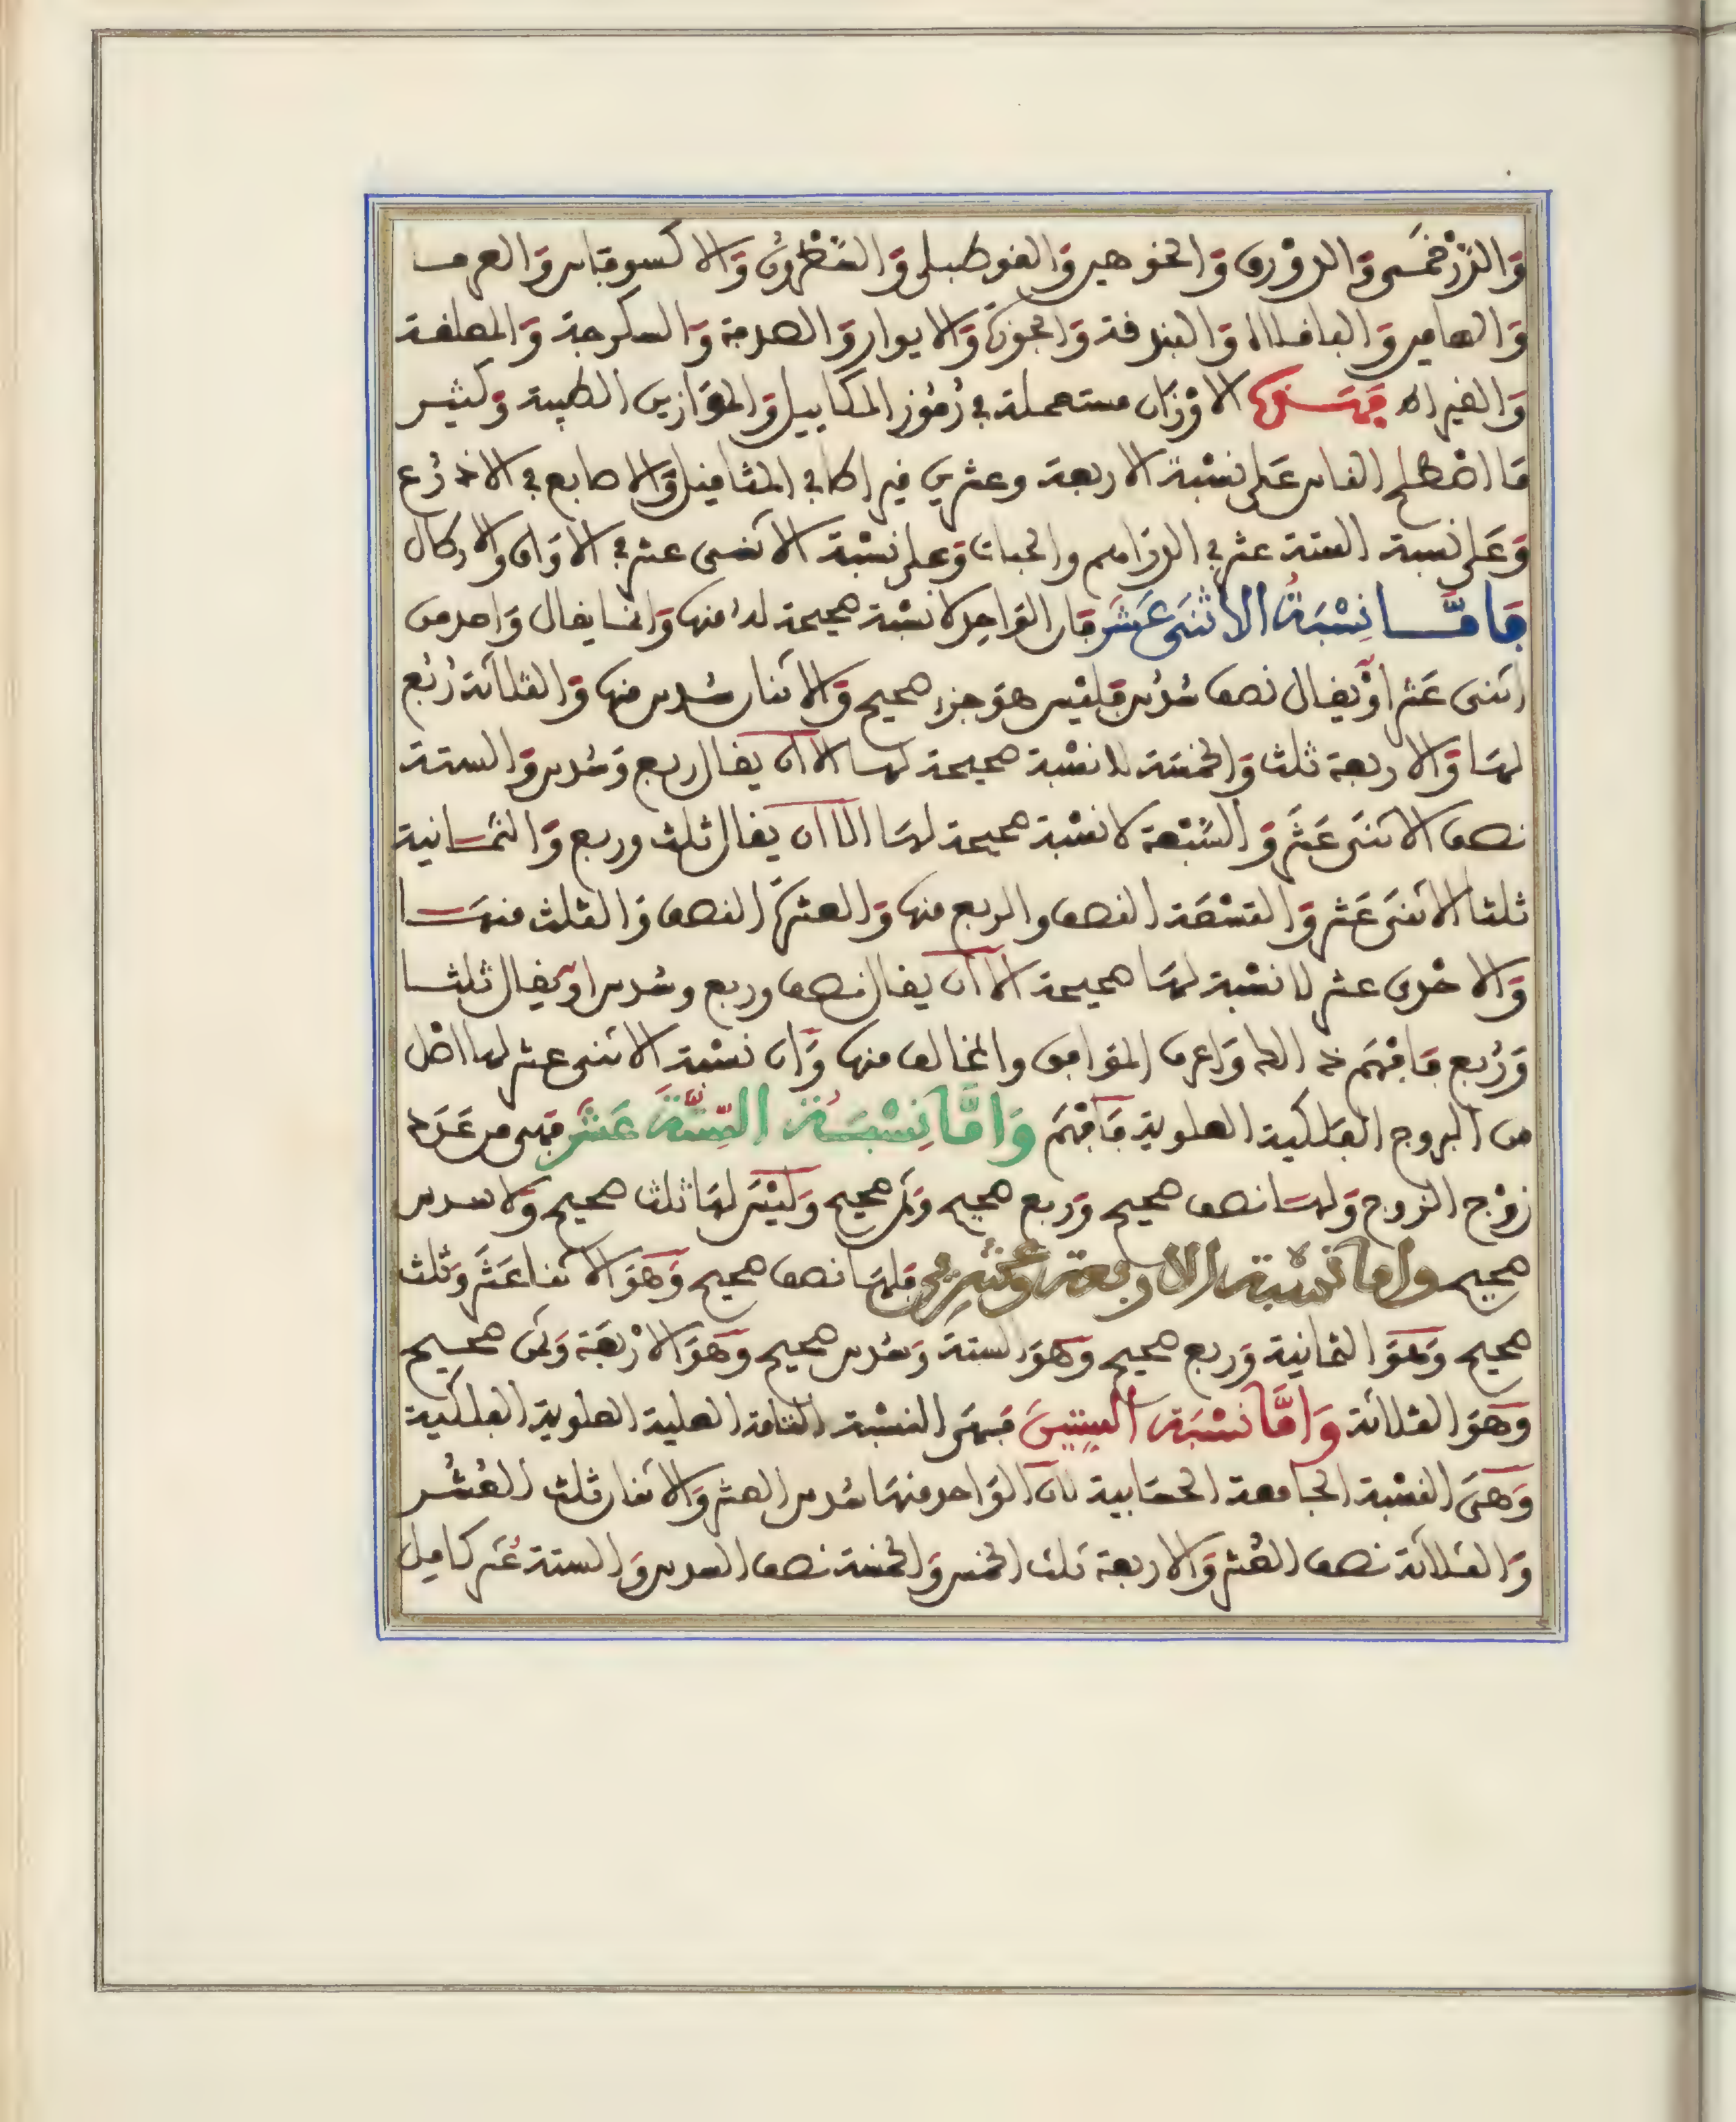 والدرخمى والدورق والجوهير والقوطبلى والقطرون والاكسوفابن والعرف
والهامين والباقلاا والبندقة والجوزة والايوار والصدفة والسكرجة والملعقة
والقيراط فهذه الاوزان مستعملة في رموز المكاييل والموازين الطبية وكثير
ما اصطلح الناس على نسبة الاربعة وعشرين قيراطا في المثاقيل والاصابع في الاذرع
وعلى نسبة الستة عشر في الدراهم والحبات وعلى نسبة الاثنى عشر في الاواق والارطال
فاما نسبة الاثنى عشر فان الواحد لا نسبة صحيحة له منها وانما يقال واحد من
اثنى عشر او يقال نصف سدس فليس هو جزء صحيح والاثنان سدس منها والثلاثة ربع
لها والاربعة ثلث والخمسة لا نسبة صحيحة لها الا ان يقال ربع وسدس والستة
نصف الاثنى عشر والسبعة لا نسبة صحيحة لها الا ان يقال ثلث وربع والثمانية
ثلثا الاثنى عشر والتسعة النصف والربع منها والعشرة النصف والثلث منها
والاحدى عشر لا نسبة لها صحيحة الا ان يقال نصف وربع وسدس او يقال ثلثا
وربع فافهم ذلك واعرف الموافق والمخالف منها وان نسبة الاثنى عشر لها اصل
من البروج الفلكية العلوية فافهم واما نسبة الستة عشر فهى من عدد
زوج الزوج ولها نصف صحيح وربع صحيح وثمن صحيح وليس لها ثلث صحيح ولا سدس
صحيح واما نسبة الاربعة وعشرين فلها نصف صحيح وهو الاثنا عشر وثلث
صحيح وهو الثمانية وربع صحيح وهو الستة وسدس صحيح وهو الاربعة وثمن صحيح
وهو الثلاثة واما نسبة الستين فهى النسبة التامة العلية العلوية الفلكية
وهى النسبة الجامعة الحسابية لان الواحد منها سدس العشر والاثنان ثلث العشر
والثلاثة نصف العشر والاربعة ثلث الخمس والخمسة نصف السدس والستة عشر كامل